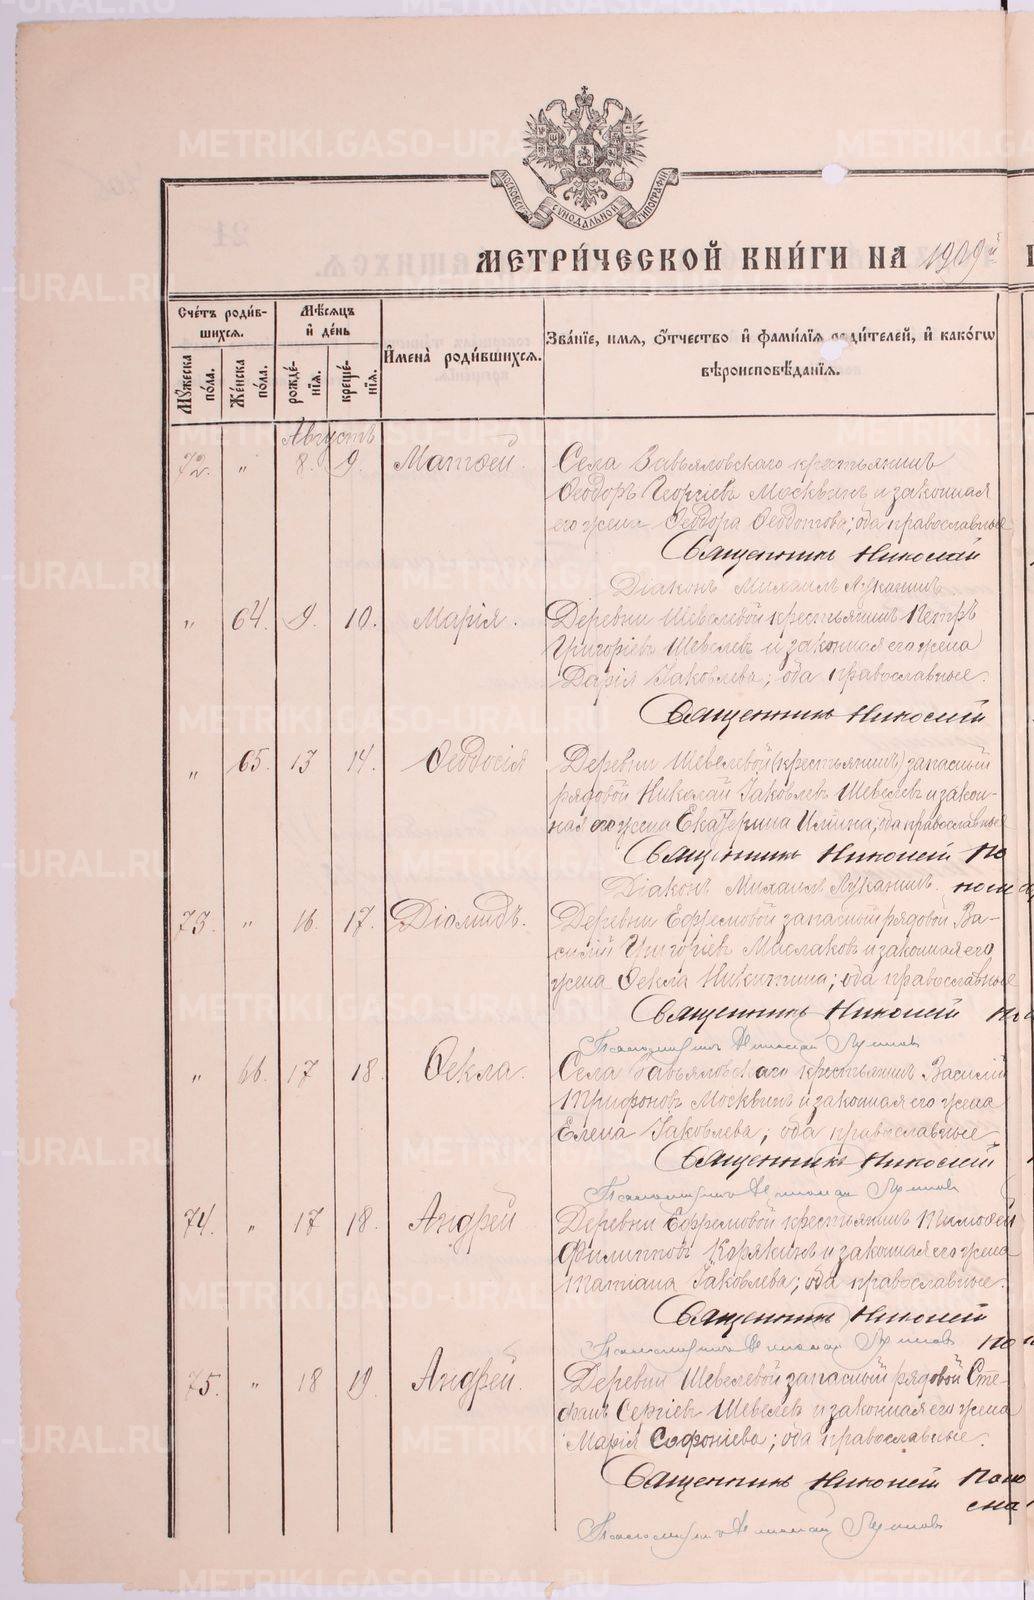 МОСКОВСКОЙ СУНОДАЛЬНОЙ ТИПОГРАФІИ
МЕТРИ́ЧЕСКОЙ КНИ́ГИ НА 1909й
Сче́тъ роди́вшихся.
Мѣ́сяцъ и҆ де́нь
И҆мена̀ роди́вшихся.
Зва́нїе, и҆мя, Ѻ҆́тчество и҆ фами́лїя роди́телей, и҆ како́гѡ вѣроисповѣ́данїя.
Мꙋ́жеска по́ла.
Же́нска по́ла.
рожде́нїя.
креще́нїя.
Августъ
72. " 8. 9. Матѳей. Села Завьяловскаго крестьянинъ
Ѳеодоръ Георгіевъ Москвинъ и законная
его жена Ѳеодора Ѳеодотова; оба православные
Священникъ Николай
Діаконъ Михаилъ Луканинъ
" 64. 9. 10. Марія. Деревни Шевелевой крестьянинъ Петръ
Григоріевъ Шевелевъ и законная его жена
Дарія Іаковлева; оба православные.
Священникъ Николай
" 65. 13 14. Ѳеодосія Деревни Шевелевой (крестьянинъ) запасный
рядовой Николай Іаковлевъ Шевелевъ и закон-
ная его жена Екатерина Ильина; оба православные
Священникъ Николай По
Діаконъ Михаилъ Луканинъ.
73. " 16. 17. Діомидъ. Деревни Ефремовой запасный рядовой Ва-
силій Григоріевъ Маслаковъ и законная его
жена Ѳекла Никитина; оба православные
Священникъ Николай
Псаломщикъ Николай
" 66. 17 18. Ѳекла. Села Завьяловскаго крестьянинъ Василій
Трифоновъ Москвинъ и законная его жена
Елена Іаковлева; оба православные
Священникъ Николай
Псаломщикъ Николай
74. " 17 18. Андрей Деревни Ефремовой крестьянинъ Тимоѳей
Филипповъ Корякинъ и законная его жена
Татіана Іаковлева; оба православные.
Священникъ Николай
Псаломщикъ Николай
75. " 18 19. Андрей. Деревни Шевелевой запасный рядовой Сте-
фанъ Сергіевъ Шевелевъ и законная его жена
Марія Софоніева; оба православные.
Священникъ Николай
Псаломщикъ Николай
METRIKI.GASO-URAL.RU